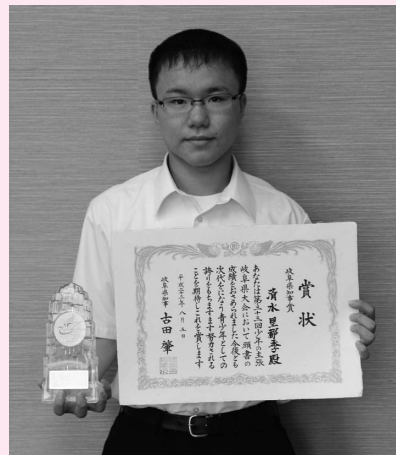 賞状
岐阜県知事賞
清水 里都季殿
あなたは第三十三回少年の主張
岐阜県大会において頭書の
成績をおさめられました今後とも
次代をになう青少年としての
誇りをもちますます努力される
ことを期待しこれを賞します
平成二十三年 八月 五日
岐阜県知事 古田 肇